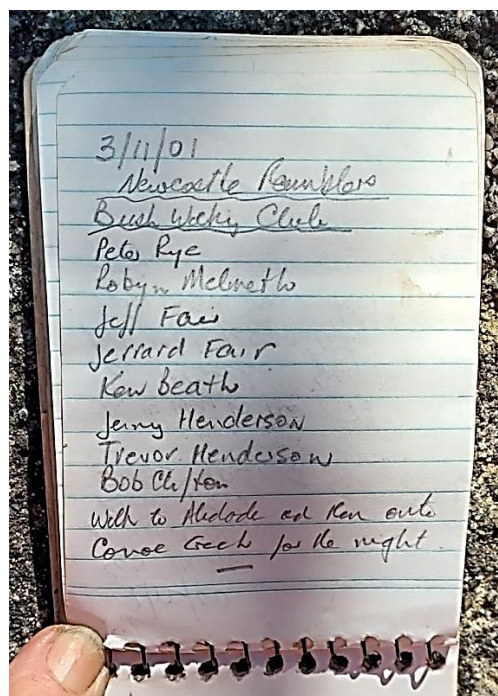 3/11/01
Newcastle Ramblers
Bush Walking Club
Peter Rye
Robyn
Jeff Fair
Jerrard Fair
Ken Beath
Jenny Henderson
Trevor Henderson
Bob Clifton
Walk to and then onto
Canoe Creek for the night.